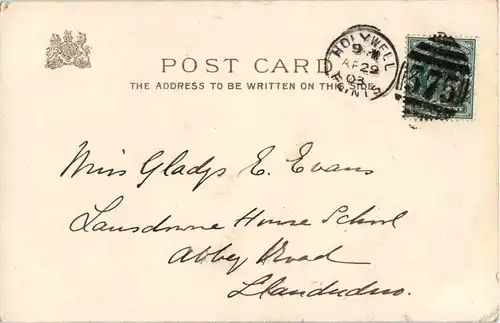 POST CARD
THE ADDRESS TO BE WRITTEN ON THIS SIDE
HOLYWELL
AP 29
03
FLINTS
375
Miss Gladys E. Evans
Lansdowne House School
Abbey Road
Llandudno.